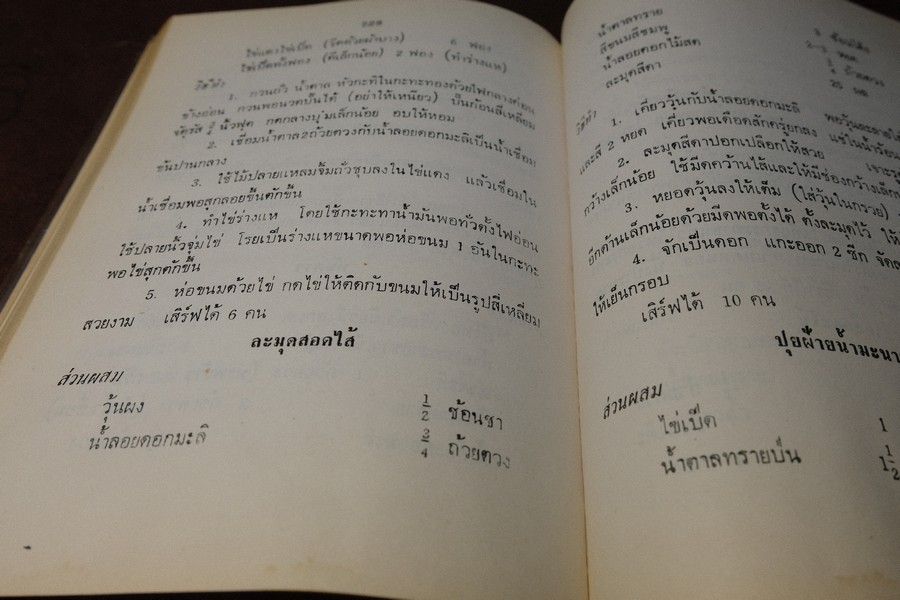 ไข่แดงไข่เป็ด (รีดด้วยผ้าบาง) 6 ฟอง
ไข่เป็ดทั้งฟอง (ตีเล็กน้อย) 2 ฟอง (ทำร่างแห)
วิธีทำ
1. กวนถั่ว น้ำตาล หัวกะทิในกะทะทองด้วยไฟกลางค่อน
ข้างอ่อน กวนพอนวดปั้นได้ (อย่าให้เหนียว) ปั้นก้อนสี่เหลี่ยม
จัตุรัส นิ้วฟุต กดกลางบุ๋มเล็กน้อย อบให้หอม
2. เชื่อมน้ำตาล 2 ถ้วยตวงกับน้ำลอยดอกมะลิเป็นน้ำเชื่อม
ข้นปานกลาง
3. ใช้ไม้ปลายแหลมจิ้มถั่วชุบลงในไข่แดง แล้วเชื่อมใน
น้ำเชื่อมพอสุกลอยขึ้นตักขึ้น
4. ทำไข่ร่างแห โดยใช้กะทะทาน้ำมันพอทั่วตั้งไฟอ่อน
ใช้ปลายนิ้วจุ่มไข่ โรยเป็นร่างแหขนาดพอห่อขนม 1 อันในกะทะ
พอไข่สุกตักขึ้น
5. ห่อขนมด้วยไข่ กดไข่ให้ติดกับขนมให้เป็นรูปสี่เหลี่ยม
สวยงาม เสิร์ฟได้ 6 คน
ละมุดสอดไส้
ส่วนผสม
วุ้นผง 1/2 ช้อนชา
น้ำลอยดอกมะลิ 3/4 ถ้วยตวง
น้ำตาลทราย 3 ช้อนโต๊ะ
สีขนมสีชมพู 2-3 หยด
น้ำลอยดอกไม้สด ถ้วยตวง
ละมุดสีดา 25 ผล
วิธีทำ
1. เคี่ยววุ้นกับน้ำลอยดอกมะลิ
และสี 2 หยด เคี่ยวพอเดือดสักครู่ยกลง
2. ละมุดสีดาปอกเปลือกให้สวย
กว้างเล็กน้อย ใช้มีดคว้านไส้และให้มีช่องกว้างเล็ก
3. หยอดวุ้นลงให้เต็ม (ใส่วุ้นในกรวย)
อีกด้านเล็กน้อยด้วยมีดพอตั้งได้ ตั้งละมุดไว้
4. จักเป็นดอก แกะออก 2 ซีก
ให้เย็นกรอบ
เสิร์ฟได้ 10 คน
ปุยฝ้ายน้ำมะนา
ส่วนผสม
ไข่เป็ด 1
น้ำตาลทรายป่น 1 1/2